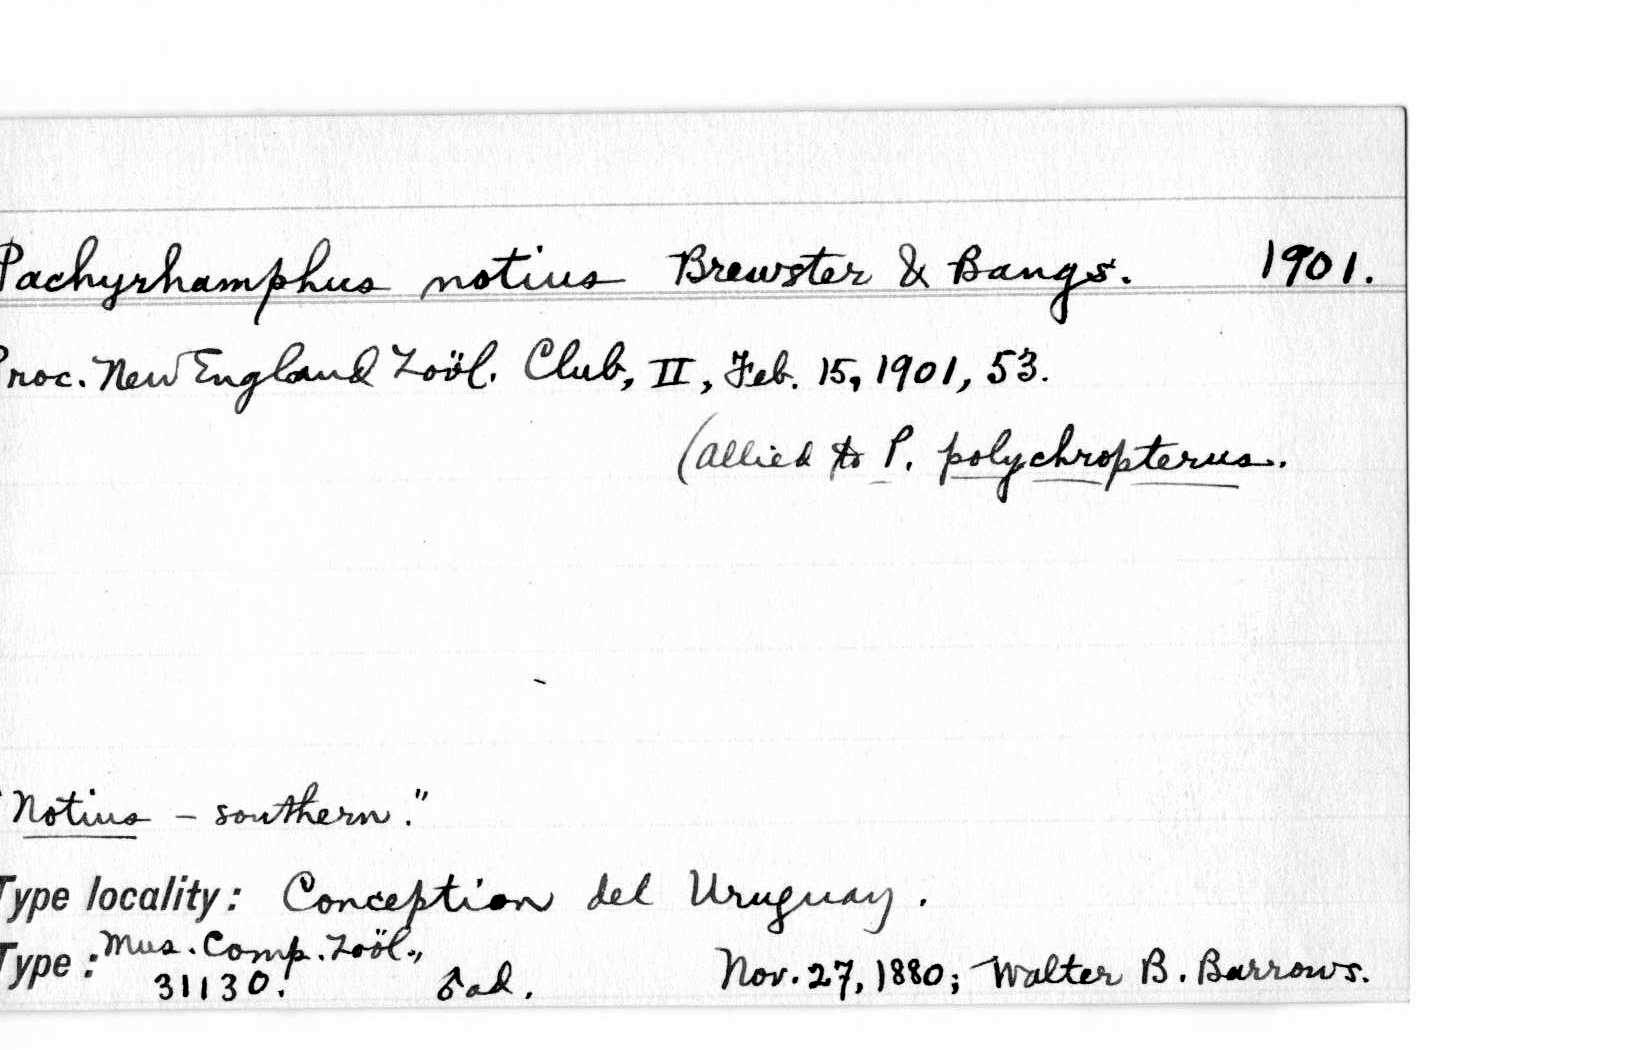 Pachyrhamphus notius Brewster & Bangs. 1901.
Proc. New England Zoöl. Club, II, Feb. 15, 1901, 53.
(allied to P. polychropterus.
"Notius – southern."
Type locality: Conception del Uruguay.
Type: Mus. Comp. Zoöl.,
31130. ♂ ad. Nov. 27, 1880; Walter B. Barrows.